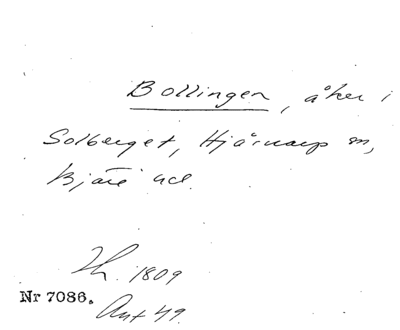 Bollingen, åker i
Solberget, Hjärnarp sn,
Bjäre hd.
Lh. 1809
Nr 7086.
Ant 49.